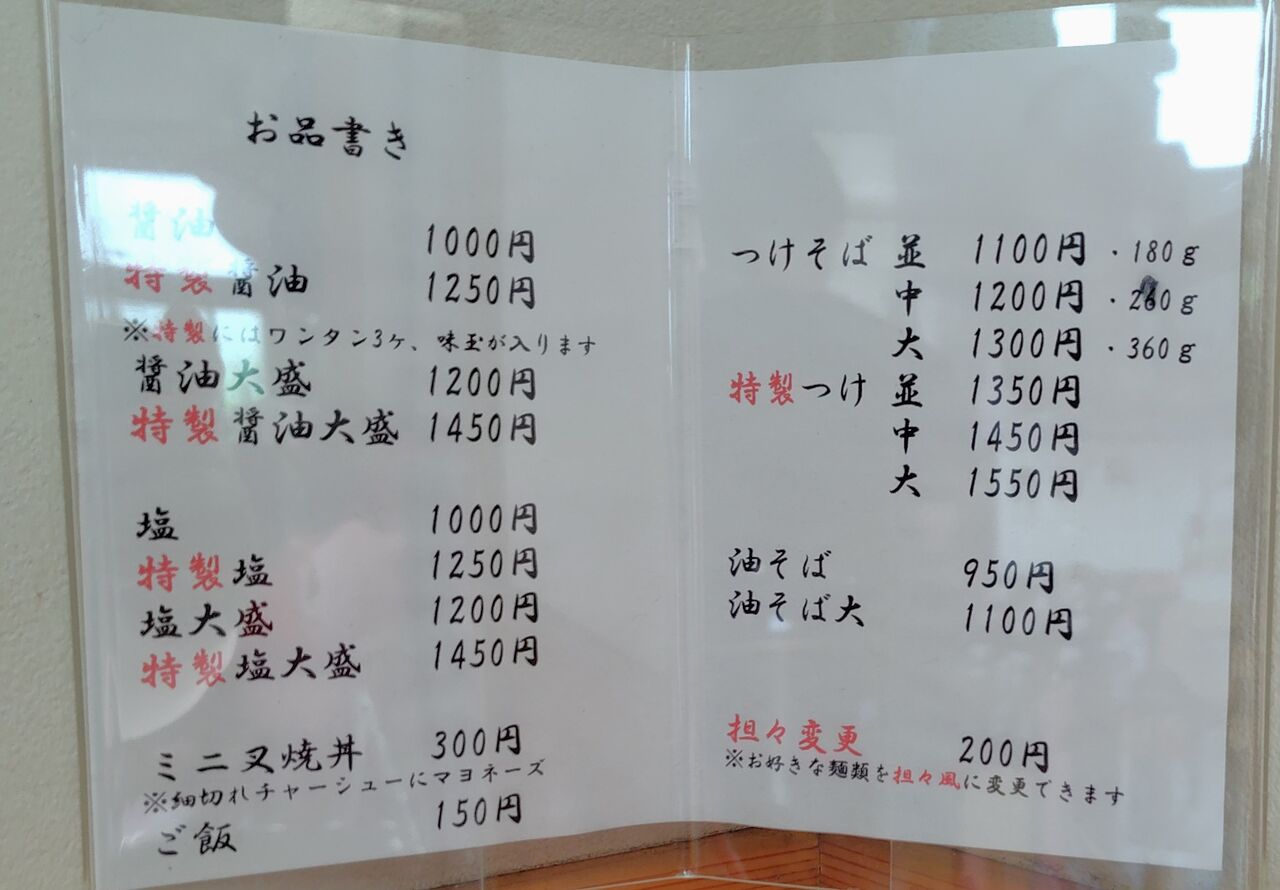 お品書き
醤油 1000円
特製醤油 1250円
※特製にはワンタン3ヶ、味玉が入ります
醤油大盛 1200円
特製醤油大盛 1450円
塩 1000円
特製塩 1250円
塩大盛 1200円
特製塩大盛 1450円
ミニ叉焼丼 300円
※細切れチャーシューにマヨネーズ
ご飯 150円
つけそば 並 1100円 ・180g
中 1200円 ・260g
大 1300円 ・360g
特製つけ 並 1350円
中 1450円
大 1550円
油そば 950円
油そば大 1100円
担々変更 200円
※お好きな麺類を担々風に変更できます